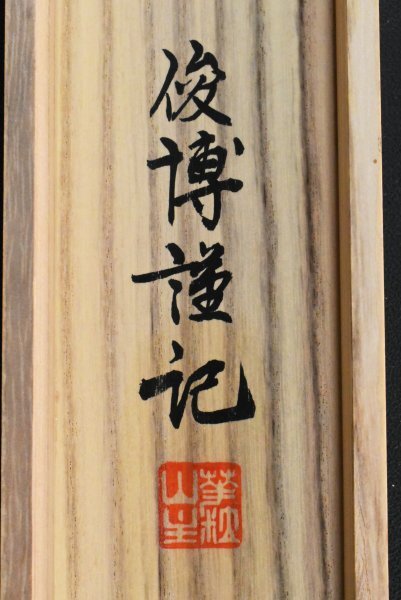 俊博謹記